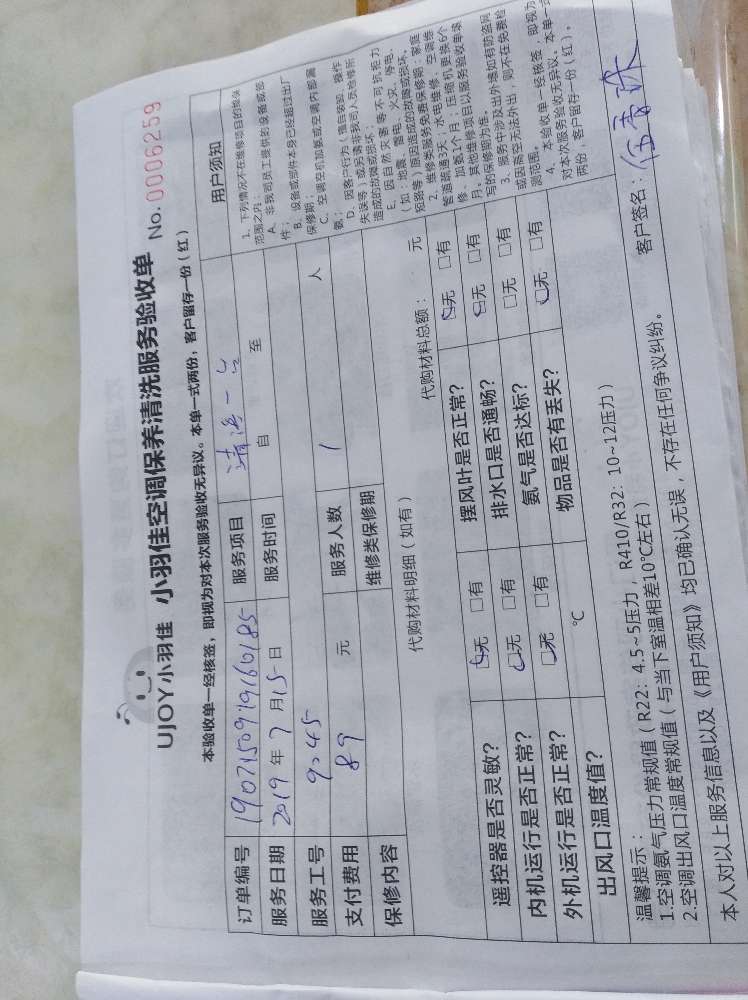 UJOY小羽佳 小羽佳空调保养清洗服务验收单 No. 0006259
本验收单一经核签，即视为对本次服务验收无异议。本单一式两份，客户留存一份（红）
订单编号 19071509191601 85 服务项目 清洗一台
服务日期 2019 年 7 月 15 日 服务时间 自 至
服务工号 9045 服务人数 1 人
支付费用 89 元 维修类保修期
保修内容
代购材料明细（如有） 代购材料总额： 元
遥控器是否灵敏？ □无 □有 摆风叶是否正常？ □无 □有
内机运行是否正常？ □无 □有 排水口是否通畅？ □无 □有
外机运行是否正常？ □无 □有 氨气是否达标？ □无 □有
出风口温度值？ ℃ 物品是否有丢失？ □无 □有
用户须知
1、下列情况不在维修项目的维保
范围之内：
A、非我司员工提供的设备或部
件；
B、设备或部件本身已经超过出厂
保修期；
C、空调空机加氨或空调内部漏
氨；
D、因客户行为（擅自安装、操作
失误等）或另请非我司人员检修所
造成的故障或损坏；
E、因自然灾害等不可抗拒力
（如：地震、雷电、火灾、停电、
短路等）原因造成的故障或损坏。
2、维修类服务免费保修期：家庭
管道疏通3天；水电维修、空调维
修、加氨1个月；压缩机更换6个
月。其他维修项目以服务验收单填
写的保修期为准。
3、服务中涉及出外墙如有防盗网
或因高空无法外出，则不在免费检
测范围。
4、本验收单一经核签，即视为
对本次服务验收无异议。本单一式
两份，客户留存一份（红）。
温馨提示：
1.空调氨气压力常规值（R22：4.5~5压力，R410/R32：10~12压力）
2.空调出风口温度常规值（与当下室温相差10℃左右）
本人对以上服务信息以及《用户须知》均已确认无误，不存在任何争议纠纷。 客户签名：